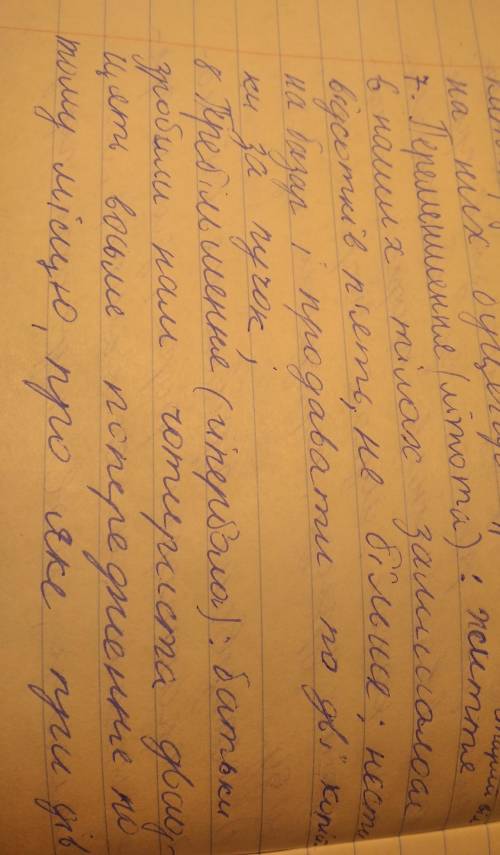 на них
7. Перменшення (літота): життя
в наших тілах залишалося
відсотків п'ять, не більше; нести
на базар і продавати по дві копій
ки за пучок;
8 Перебільшення (гіпербола): батьки
зробили нам чотириста двад
цять восьме попередження по
тому місцю, про яке при дів